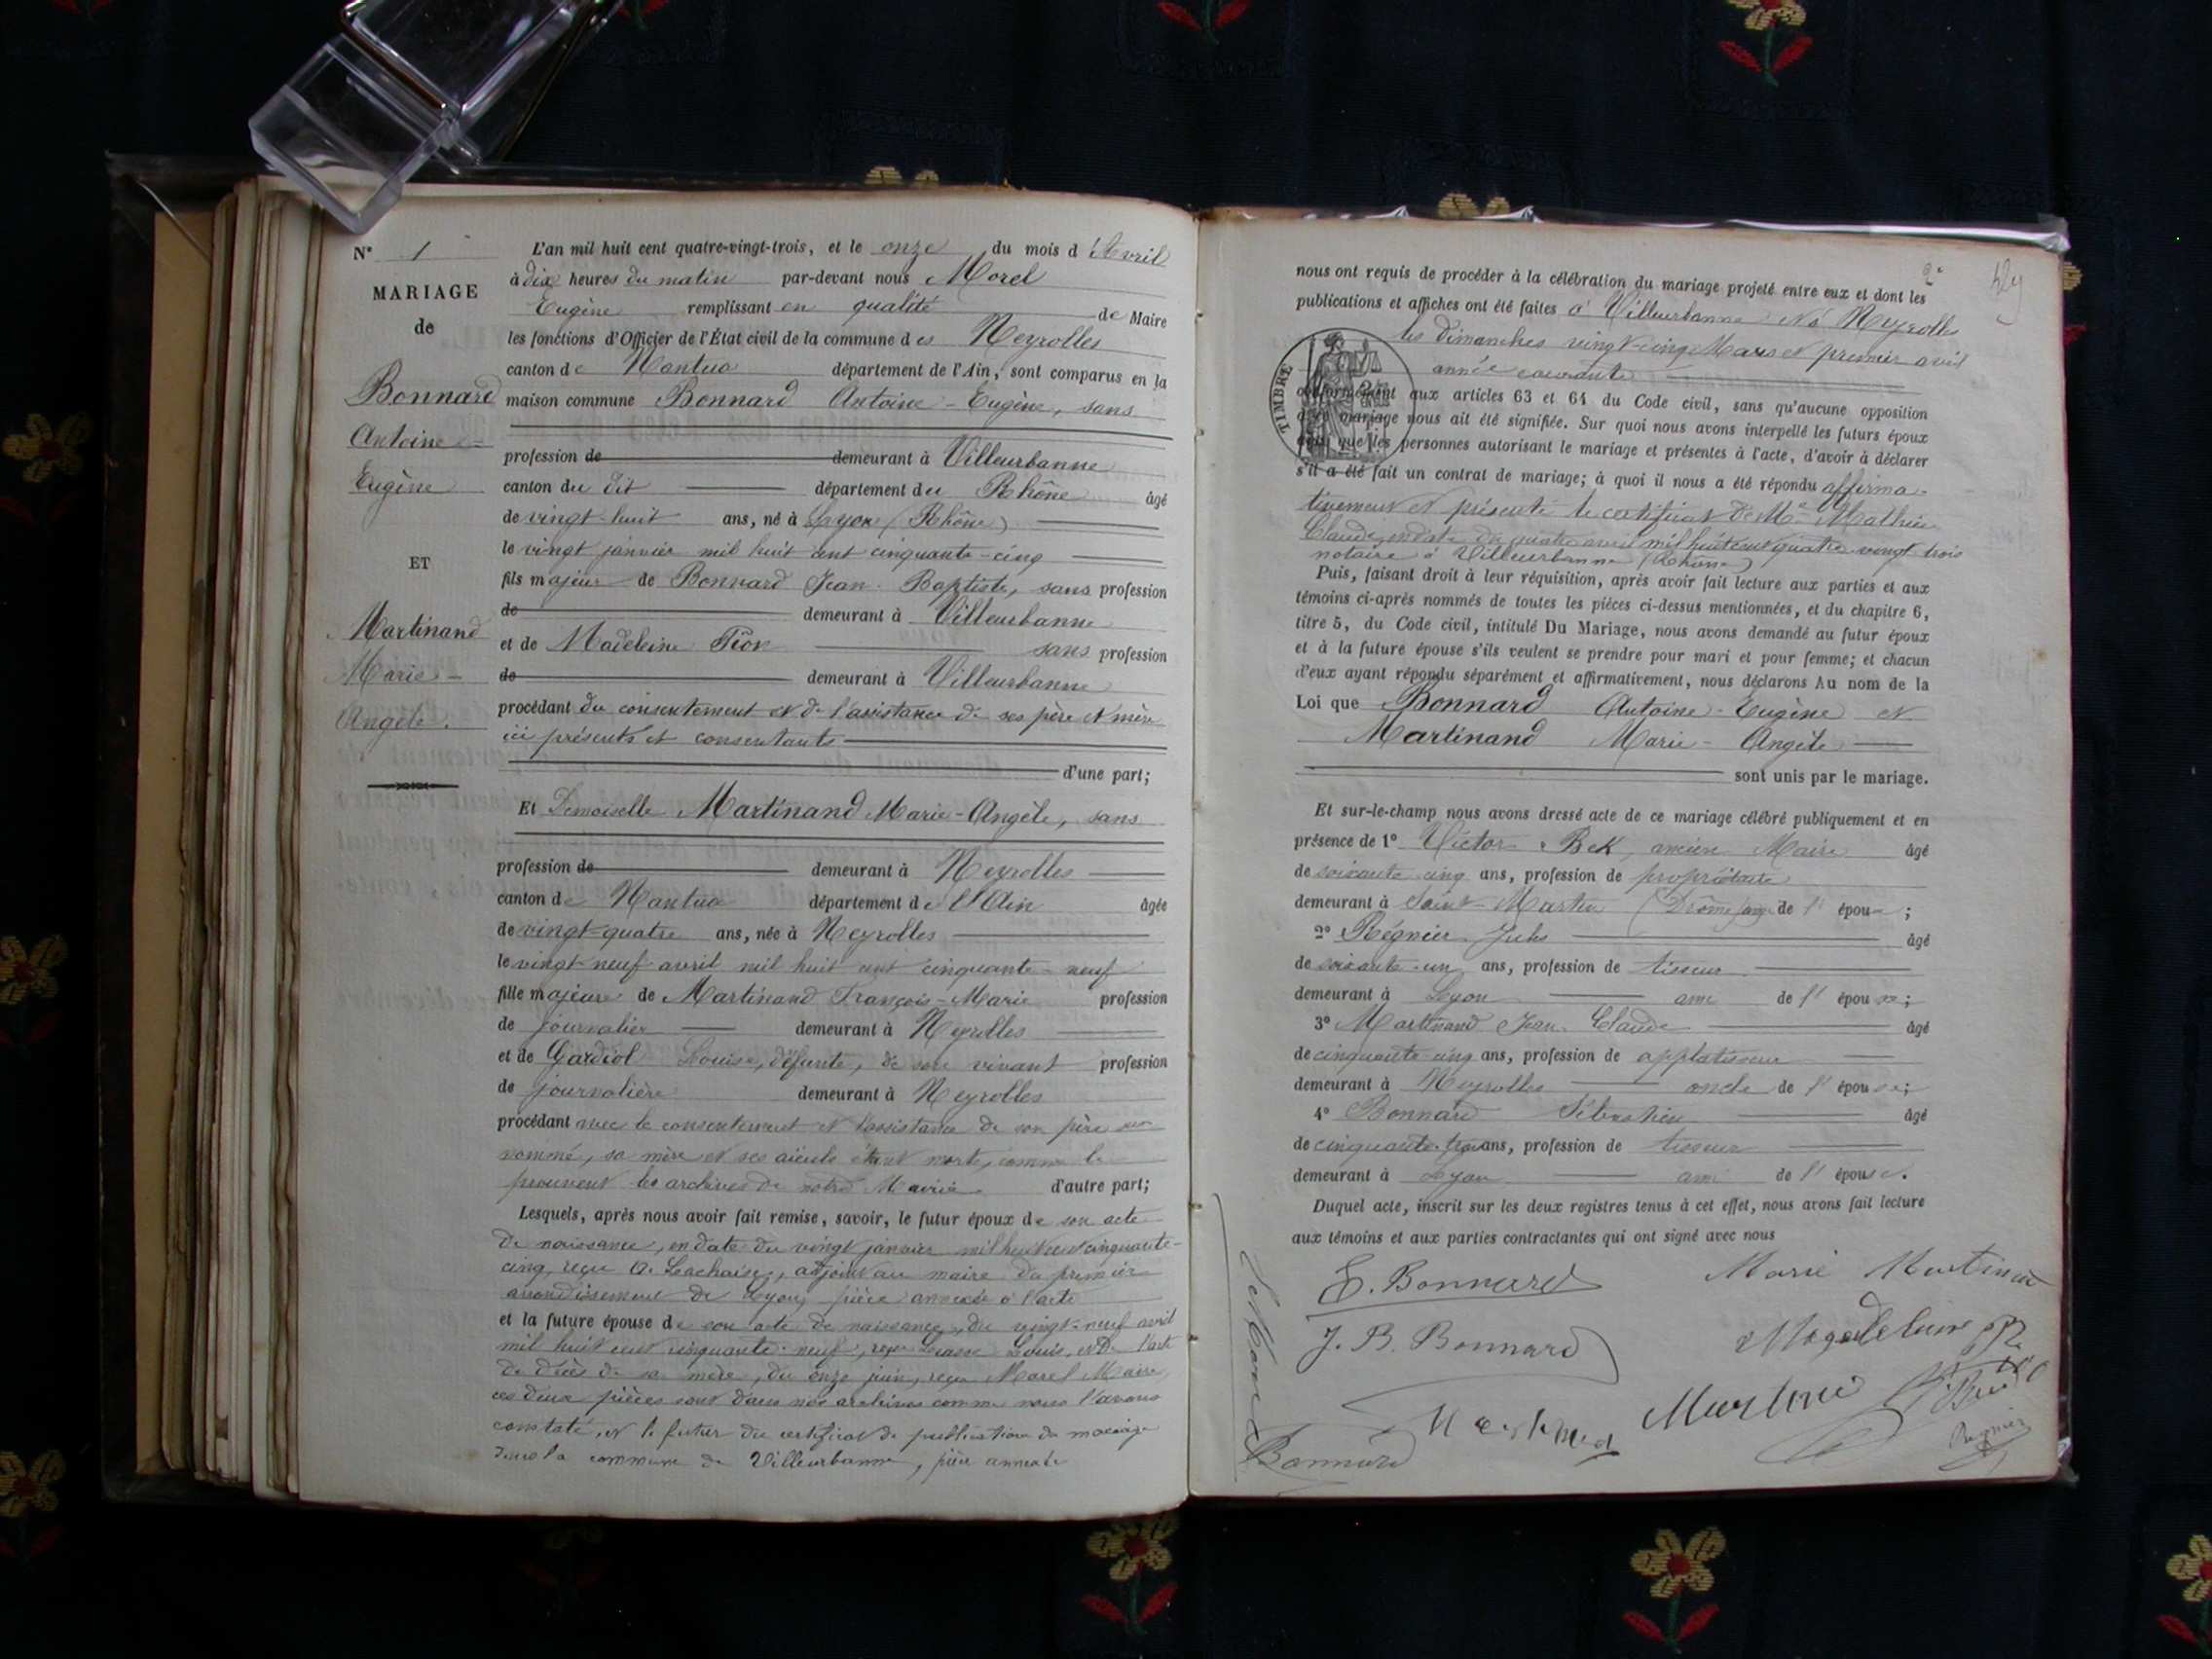 N° 1
MARIAGE
de
Bonnard
Antoine-
Eugène
ET
Martinand
Marie-
Angèle.
L'an mil huit cent quatre-vingt-trois, et le onze du mois d'Avril
à dix heures du matin par-devant nous Morel
Eugène remplissant en qualité de Maire
les fonctions d'Officier de l'État civil de la commune des Neyrolles
canton de Nantua département de l'Ain, sont comparus en la
maison commune Bonnard Antoine-Eugène, sans
profession de demeurant à Villeurbanne
canton du dit département du Rhône âgé
de vingt-huit ans, né à Lyon (Rhône)
le vingt janvier mil huit cent cinquante-cinq
fils majeur de Bonnard Jean-Baptiste, sans profession
de demeurant à Villeurbanne
et de Madeleine sans profession
de demeurant à Villeurbanne
procédant du consentement et de l'assistance de ses père et mère
ici présents et consentants
d'une part;
Et Demoiselle Martinand Marie-Angèle, sans
profession de demeurant à Neyrolles
canton de Nantua département de l'Ain âgée
de vingt-quatre ans, née à Neyrolles
le vingt-neuf avril mil huit cent cinquante-neuf
fille majeure de Martinand François-Marie profession
de journalier demeurant à Neyrolles
et de Gardiol Louise, défunte, de son vivant profession
de journalière demeurant à Neyrolles
procédant avec le consentement et l'assistance de son père sus
nommé, sa mère et ses aïeuls étant morts, comme le
prouvent les archives de notre Mairie d'autre part;
Lesquels, après nous avoir fait remise, savoir, le futur époux de son acte
de naissance, en date du vingt janvier mil huit cent cinquante-
cinq, reçu adjoint au maire du premier
arrondissement de Lyon, pièce annexée à l'acte
et la future épouse de son acte de naissance, du vingt-neuf avril
mil huit cent cinquante-neuf, reçu Louis, et de l'acte
de décès de sa mère, du onze juin, reçu Morel Maire,
ces deux pièces sont dans nos archives comme nous l'avons
constaté, et le futur du certificat de publication de mariage
dans la commune de Villeurbanne, pièce annexée
2e
nous ont requis de procéder à la célébration du mariage projeté entre eux et dont les
publications et affiches ont été faites à Villeurbanne et à Neyrolles
les dimanches vingt-cinq Mars et premier avril
année courante
TIMBRE
conformément aux articles 63 et 64 du Code civil, sans qu'aucune opposition
à ce mariage nous ait été signifiée. Sur quoi nous avons interpellé les futurs époux
ainsi que les personnes autorisant le mariage et présentes à l'acte, d'avoir à déclarer
s'il a été fait un contrat de mariage; à quoi il nous a été répondu affirma-
tivement et présenté le certificat de Me Mathieu
Claude, en date du quatre avril mil huit cent quatre-vingt trois
notaire à Villeurbanne (Rhône)
Puis, faisant droit à leur réquisition, après avoir fait lecture aux parties et aux
témoins ci-après nommés de toutes les pièces ci-dessus mentionnées, et du chapitre 6,
titre 5, du Code civil, intitulé Du Mariage, nous avons demandé au futur époux
et à la future épouse s'ils veulent se prendre pour mari et pour femme; et chacun
d'eux ayant répondu séparément et affirmativement, nous déclarons Au nom de la
Loi que Bonnard Antoine-Eugène et
Martinand Marie-Angèle
sont unis par le mariage.
Et sur-le-champ nous avons dressé acte de ce mariage célébré publiquement et en
présence de 1° Victor Bek, ancien Maire âgé
de soixante cinq ans, profession de propriétaire
demeurant à Saint-Martin (Drôme) de l' épou ;
2° Régnier Jules âgé
de soixante-un ans, profession de tisseur
demeurant à Lyon ami de l' épouse;
3° Martinand Jean-Claude âgé
de cinquante-cinq ans, profession de applatisseur
demeurant à Neyrolles oncle de l' épouse;
4° Bonnard Sébastien âgé
de cinquante-trois ans, profession de tisseur
demeurant à Lyon ami de l' épouse.
Duquel acte, inscrit sur les deux registres tenus à cet effet, nous avons fait lecture
aux témoins et aux parties contractantes qui ont signé avec nous
E. Bonnard
Marie Martinand
J. B. Bonnard
Magdeleine
Bonnard
Regnier